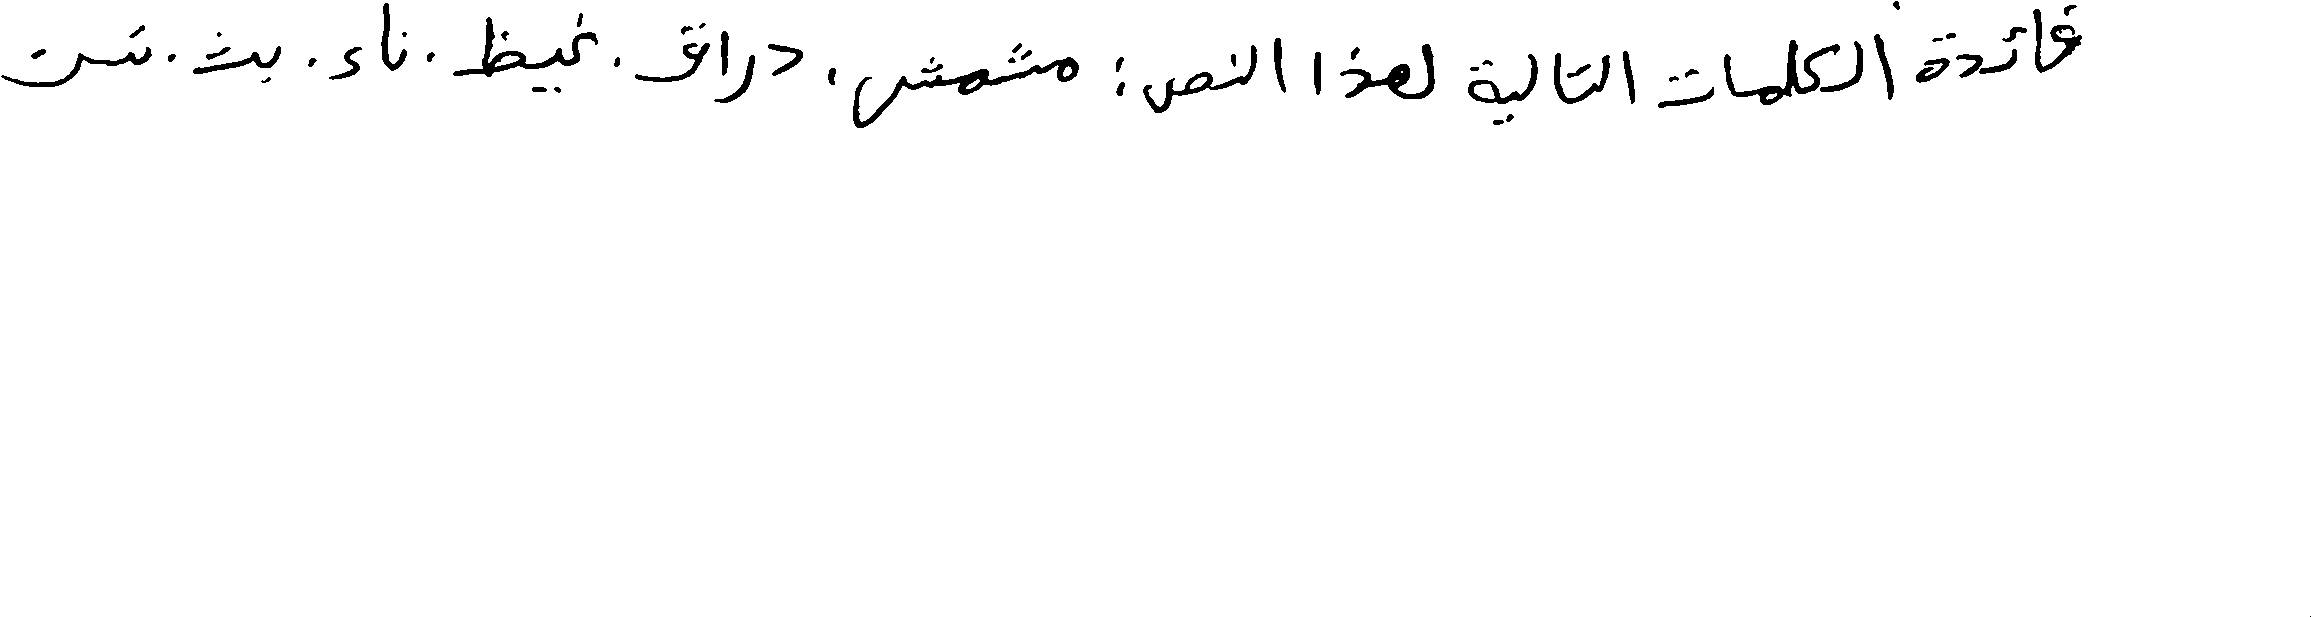 فائدة الكلمات التالية لهذا النص: مشمش، دراق. غيظ. ناء. بث. شت